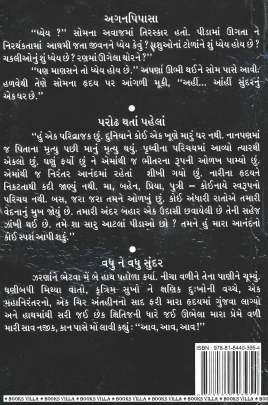 અગનપિપાસા
"ધ્યેય ?" સોમના અવાજમાં તિરસ્કાર હતો. પીડામાં ઊગતા ને
નિરર્થકતામાં આથમી જતા જીવનને ધ્યેય કેવું ? મૂમુષુઓનાં ટોળાંને શું ધ્યેય હોય છે ?
ચકલીઓનું શું ધ્યેય છે ? રણમાં ઊગેલા થોરને ?"
"પણ માણસને તો ધ્યેય હોય છે." અપર્ણા ઊભી થઈને સોમ પાસે આવી.
હળવેથી તેણે સોમના હૃદય પર આંગળી મૂકી, "અહીં... આંહીં સુંદરનું
એક ઘર છે."
પરોઢ થતાં પહેલાં
"હું એક પરિવ્રાજક છું. દુનિયાને કોઈ એક ખૂણે મારું ઘર નથી. નાનપણમાં
જ પિતાના મૃત્યુ પછી માનું મૃત્યુ થયું. પૃથ્વીના પરિચયમાં આવ્યો ત્યારથી
એકલો છું. ઘણું ફર્યો છું ને એમાંથી જ ભીતરના રૂપની ઓળખ પામ્યો છું.
એમાંથી જ નિરંતર આનંદમાં રહેતાં શીખી ગયો છું. નારીના હૃદયને
નિકટતાથી કદી જાણ્યું નથી. મા, બહેન, પ્રિયા, પુત્રી – કોઈનાયે સ્વરૂપનો
પરિચય નથી. બસ, જરા જરા તમને ઓળખું છું. અંધારી રાતોએ તમારી
વેદનાનું મુખ જોયું છે. તમારી અંદર બહાર એક ઉદાસી છવાયેલી છે તેની સહેજ
ઝાંખી થઈ છે. તમે શા સારુ આટલાં પીડાઓ છો ? તમને હું મારા આનંદનો
કોઈ સ્પર્શ આપી શકું."
વધુ ને વધુ સુંદર
ઝરણાંને ભેટવા મેં બે હાથ પહોળા કર્યા. નીચા વળીને તેના પાણીને ચૂમ્યું.
ઘણીબધી મિથ્યા વાતો, કૃત્રિમ સુખો ને ક્ષણિક દુઃખોની વચ્ચે, એક
મહાનિરંતરનો, એક ચિર અંતહીનનો સાદ ફરી મારા હૃદયમાં ગુંજવા લાગ્યો
અને હાથમાંથી સરી જઈ છેક ક્ષિતિજની ધારે જઈ ઊભેલા મારા પ્રેમે વળી
મારી સાવ નજીક, કાન પાસે મોં લાવી કહ્યું : "આવ, આવ, આવ !"
ISBN : 978-81-8440-395-4
BOOKS VILLA ♦ BOOKS VILLA ♦ BOOKS VILLA ♦ BOOKS VILLA ♦ BOOKS VILLA